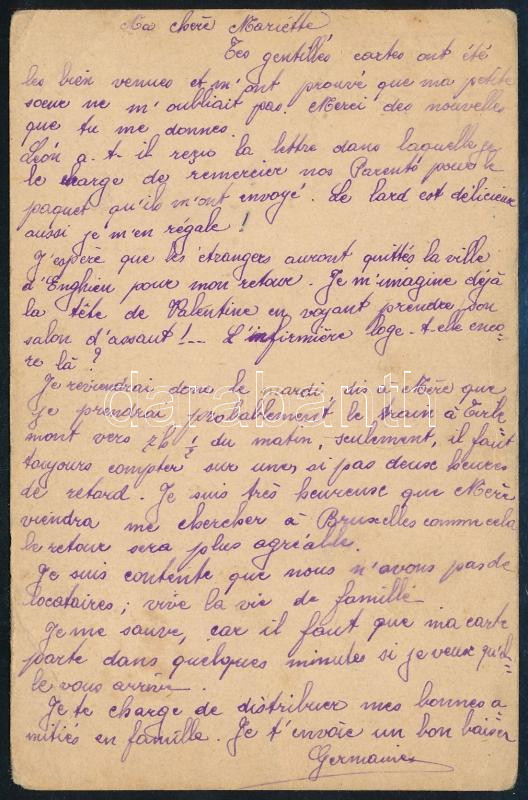 Ma chère Mariette
Tes gentilles cartes ont été
les bien venues et m'ont prouvé que ma petite
sœur ne m'oubliait pas. Merci des nouvelles
que tu me donnes.
Léon a-t-il reçu la lettre dans laquelle je
le charge de remercier nos Parents pour le
paquet qu'ils m'ont envoyé. Le lard est délicieux
aussi je m'en régale !
J'espère que les étrangers auront quittés la ville
d'Enghien pour mon retour. Je m'imagine déjà
la tête de Valentine en voyant prendre son
salon d'assaut !... L'infirmière loge-t-elle enco-
re là ?
Je reviendrai donc le mardi, dis à Mère que
je prendrai probablement le train à Tirle
mont vers 7h 1/2 du matin, seulement, il faut
toujours compter sur une, si pas deux heures
de retard. Je suis très heureuse que Mère
viendra me chercher à Bruxelles comme cela
le retour sera plus agréable.
Je suis contente que nous n'avons pas de
locataires ; vive la vie de famille
Je me sauve, car il faut que ma carte
parte dans quelques minutes si je veux qu'el-
le vous arrive.
Je te charge de distribuer mes bonnes a
mitiés en famille. Je t'envoie un bon baiser
Germaine
darabanth